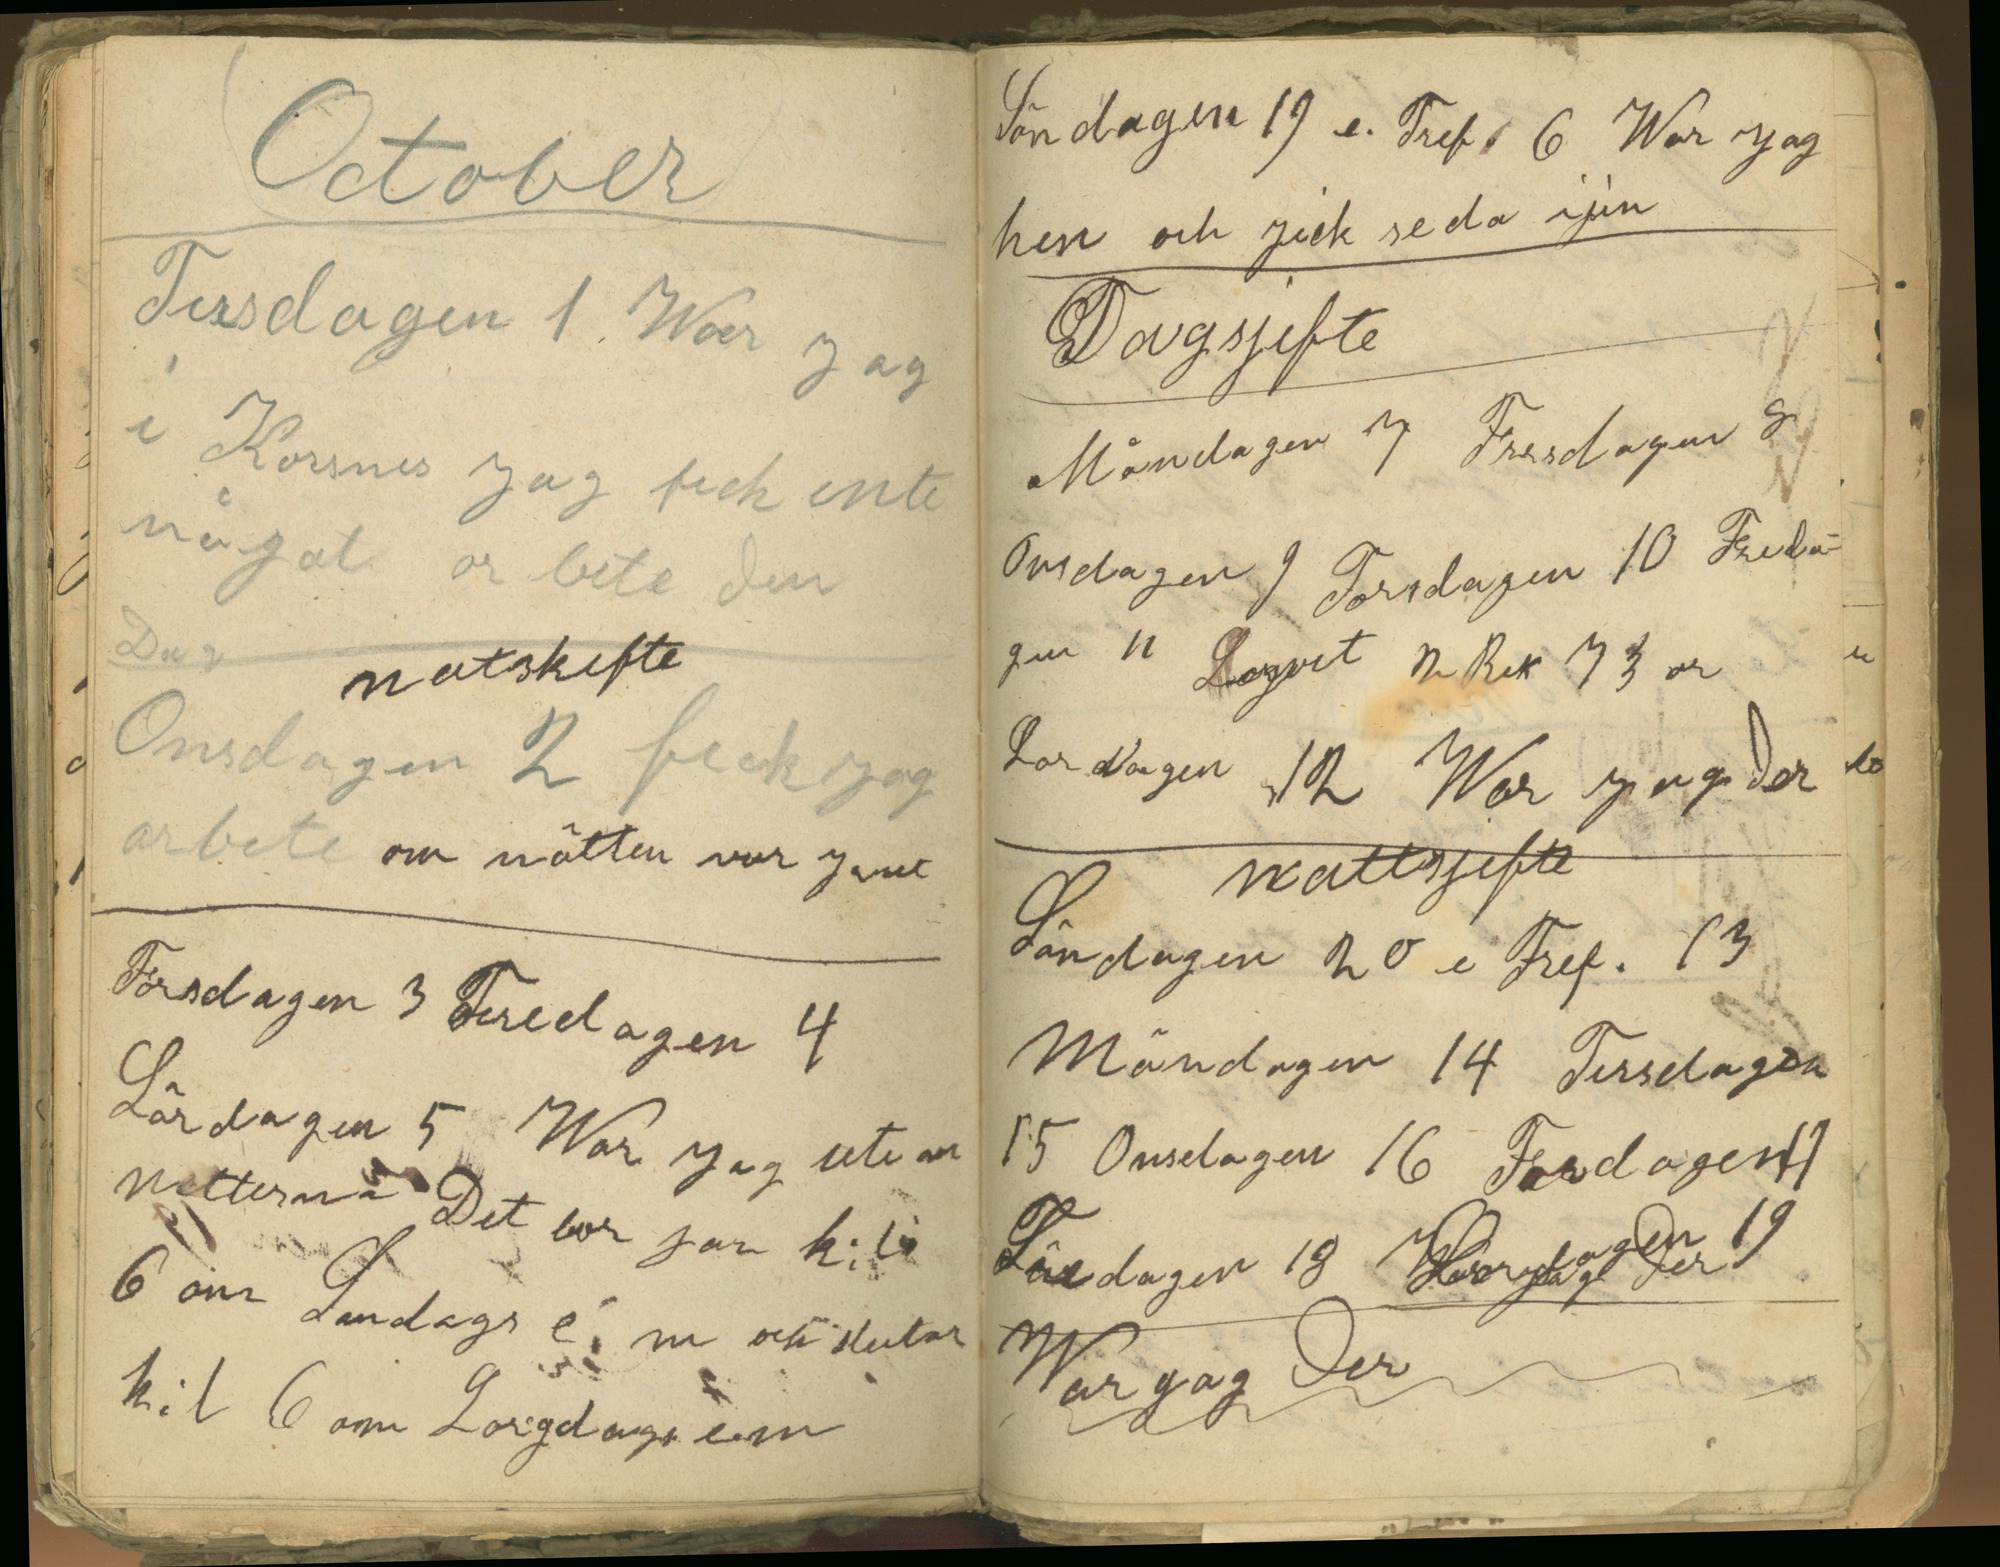 October
Tirsdagen 1. War jag
i Korsnes jag fick inte
något arbete den
Dag
natskifte
Onsdagen 2 fick jag
arbete om nätten var jwt
Torsdagen 3 Firedagen 4
Lördagen 5 War jag ute om
netterna Det bör jar kil
6 om Sondags e. m och slutar
kil 6 om Lorgdags em
Söndagen 19 e. Tref. 6 War jag
hem och gick seda ijin
Dagsjefte
Måndagen 7 Tirsdagen 8
Onsdagen 9 Torsdagen 10 Freda-
gen 11 Logret n Rek 73 or
Lordagen 12 War jag Der
nattsjefte
Söndagen 20 e Tref. 13
Måndagen 14 Tirsdagen
15 Onsdagen 16 Tordagen 17
dagen 18 19
War jag Der